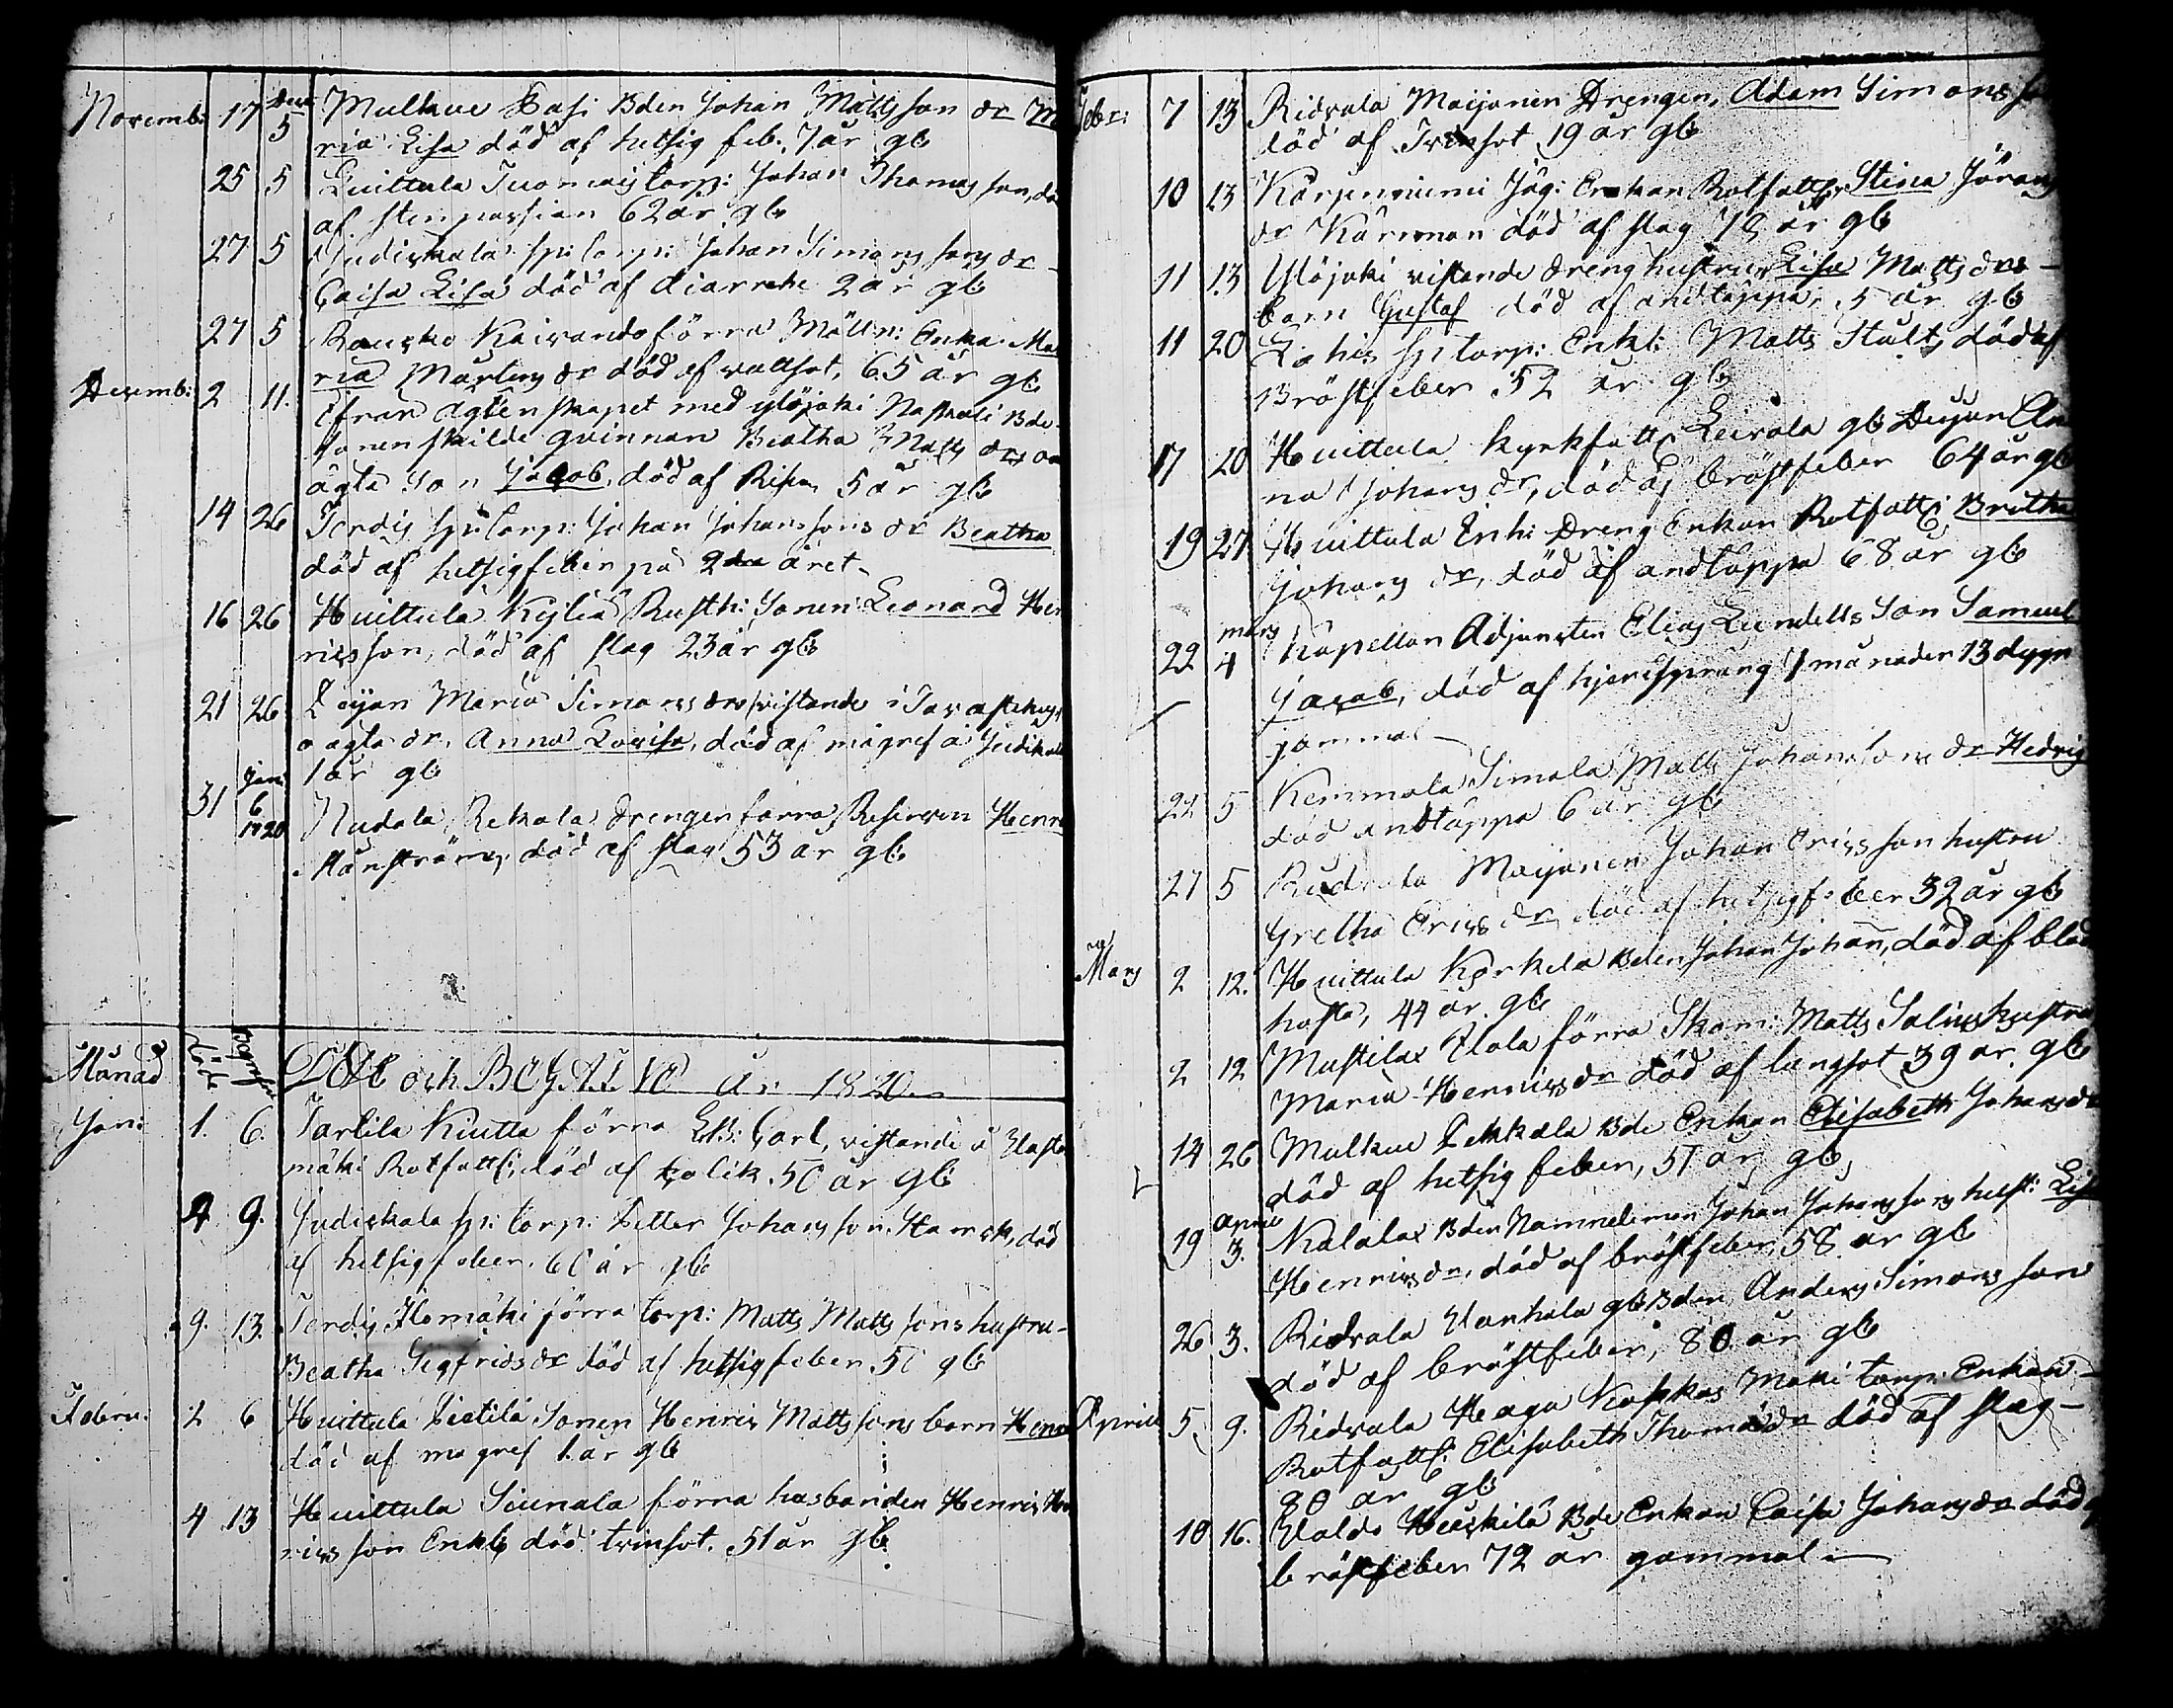 Novemb: 17 Dec 5 Mulkue Pasi Bden Johan Mattsson dr Ma
ria Lisa död af hetsig feb: 7 år gl:
25 5 Huittula Tuomais torp: Johan Thomasson, dö
af stenpassion 62 år gl:
27 5 Judickala sp: torp: Johan Simonssons dr
Caisa Lisa död af diarrhe 2 år gl:
27 5 Kaivando förra Enka Ma
ria Mårtens dr död af vattsot, 65 år gl:
Decemb: 2 11. ifrån ägtenskapet med ylöjoki Bde
sonen skilde qvinnan Beatha Matts drs oä
ägta Son Jacob, död af Risen 5 år gl:
14 26 Terdis sp: torp: Johan Johanssons dr Beatha
död af hetsigfeber på 2dra året
16 26 Huittula Kylä Rusth: Sonen Leonard Hen
ricsson, död af slag 23 år gl:
21 26 Pigan Maria Simons drs vistande i Tavastehus
oägta dr. Anna Lovisa, död af magref å Judikala
1 år gl:
31 Jan: 6 1820 Nudala Rekola drengen förra Reserven Henri
död af slag 53 år gl:
Månad döde begrafne DÖDE och BEGRAFNE År 1820
Jan: 1. 6. Tarkila Kiutta förra Carl, vistande å
mäki Rotfatt: död af kolik. 50 år gl:
4 9. Judickala sp: torp: Petter Johansson död
af hetsigfeber. 60 år gl:
9. 13. Terdis Ilomäki förra torp: Matts Mattssons hustru
Beatha Sigfrids dr död af hetsigfeber 50 gl:
Febru: 2 6 Huittula Pietilä Sonen Henric Mattssons barn Henric
död af magref 1 år gl:
4 13 Huittula Siunala förra husbonden Henric Hen
ricsson Enkl: död trinsot. 51 år gl:
Febr: 7 13 Ridvala Maijanen Drengen, Adam Simonsson
död af Trinsot 19 år gl:
10 13 Kärjenniemi Jäg: Enkan Rotfatt: Stina Jörans
dr Kärman död af slag 78 år gl:
11 13 Ylöjoki vistande dreng hustrun Lisa Matts drs
barn Gustaf död af andtäppa, 5 år gl:
11 20 Lahis sp: torp: Enkl: Matts Stult, död af
Bröstfeber 52 år gl:
17 20 Huittula kyrkfatt: Leirola gl: Pigan An
na Johans dr, död af bröstfeber 64 år gl:
19 27 Huittula Erki Dreng Enkan Rotfatt: Britha
Johans dr, död af andtäppa 68 år gl:
22 mars 4 Capellan Adjuncten Elias Lundells Son Samuel
Jacob, död af hjertsprång 7 månader 13 dygn
gammal
22 5 Kemmola Simola Matts Johanssons dr Hedvig
död andtäppa 6 år gl:
27 5 Rudvala Maijanen Johan Ericsson hustru
Gretha Erics dr död af hetsigfeber 32 år gl:
Mars 2 12. Huittula Korkela Bden Johan Johan, död af blod
hosta, 44 år gl:
2 12 Mustila Uola förra Skom: Matts Salins hustru
Maria Henrics dr död af lungsot 39 år gl:
14 26 Mulkue Pekkala Bde Enkan Elisabeth Johans dr
död af hetsig feber, 51 år, gl:
19 April 3. Kalala Bden Nämndeman Johan Johanssons hust: Lisa
Henrics dr, död af bröstfeber 58 år gl:
26 3. Ridvala Vanhala gl: Bden Anders Simonsson
död af bröstfeber, 80 år gl:
April 5. 9. Ridvala Haga Mäki torp: Enkan
Rotfatt: Elisabeth Thomæ dr död af slag
80 år gl:
10 16. Uoldi Heickilä Bde Enkan Caisa Johans dr död af
bröstfeber 72 år gammal